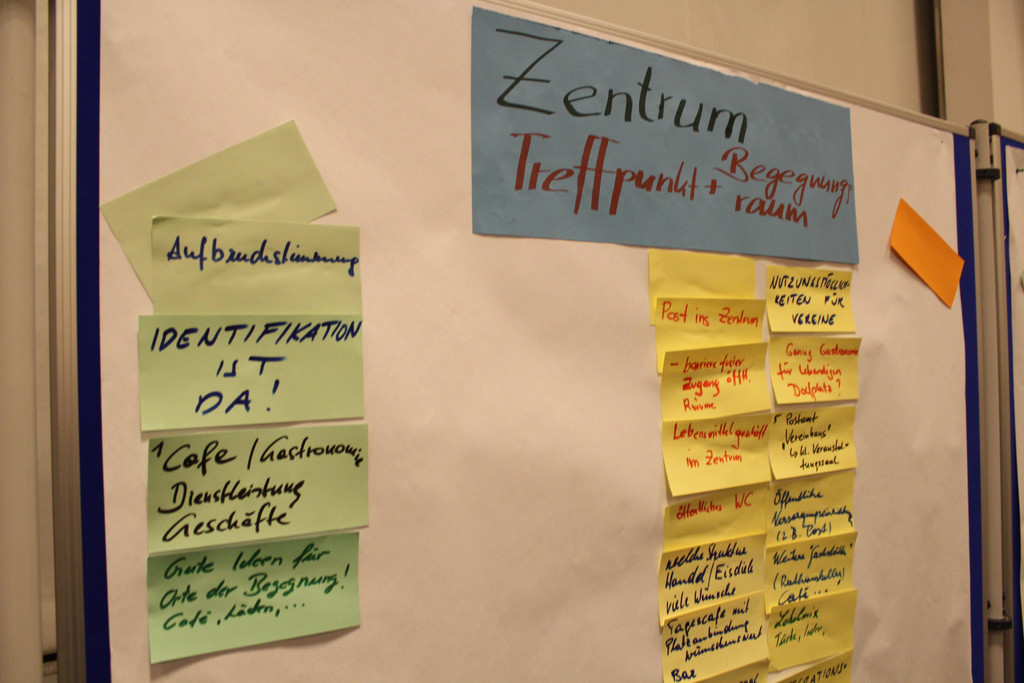 Zentrum
Treffpunkt + Begegnungs
raum
Aufbruchstimmung
IDENTIFIKATION
IST
DA!
1 Cafe / Gastronomie
Dienstleistung
Geschäfte
Gute Ideen für
Orte der Begegnung!
Café, Läden, ...
Post ins Zentrum
- barriere freier
Zugang öfftl.
Räume
Lebensmittelgeschäft
im Zentrum
öffentliches WC
welche Struktur
Handel / Eisdiele
viele Wünsche
Tagescafe mit
Platzanbindung
wünschenswert
Bar
NUTZUNGSMÖGLICH-
KEITEN FÜR
VEREINE
Genug Gastronomie
für lebendigen
Dorfplatz?
5 Postamt
"Vereinhaus"
Veranstal-
tungssaal
Öffentliche
(z.B. Post)
Weitere
Café ...,
Lokalmix